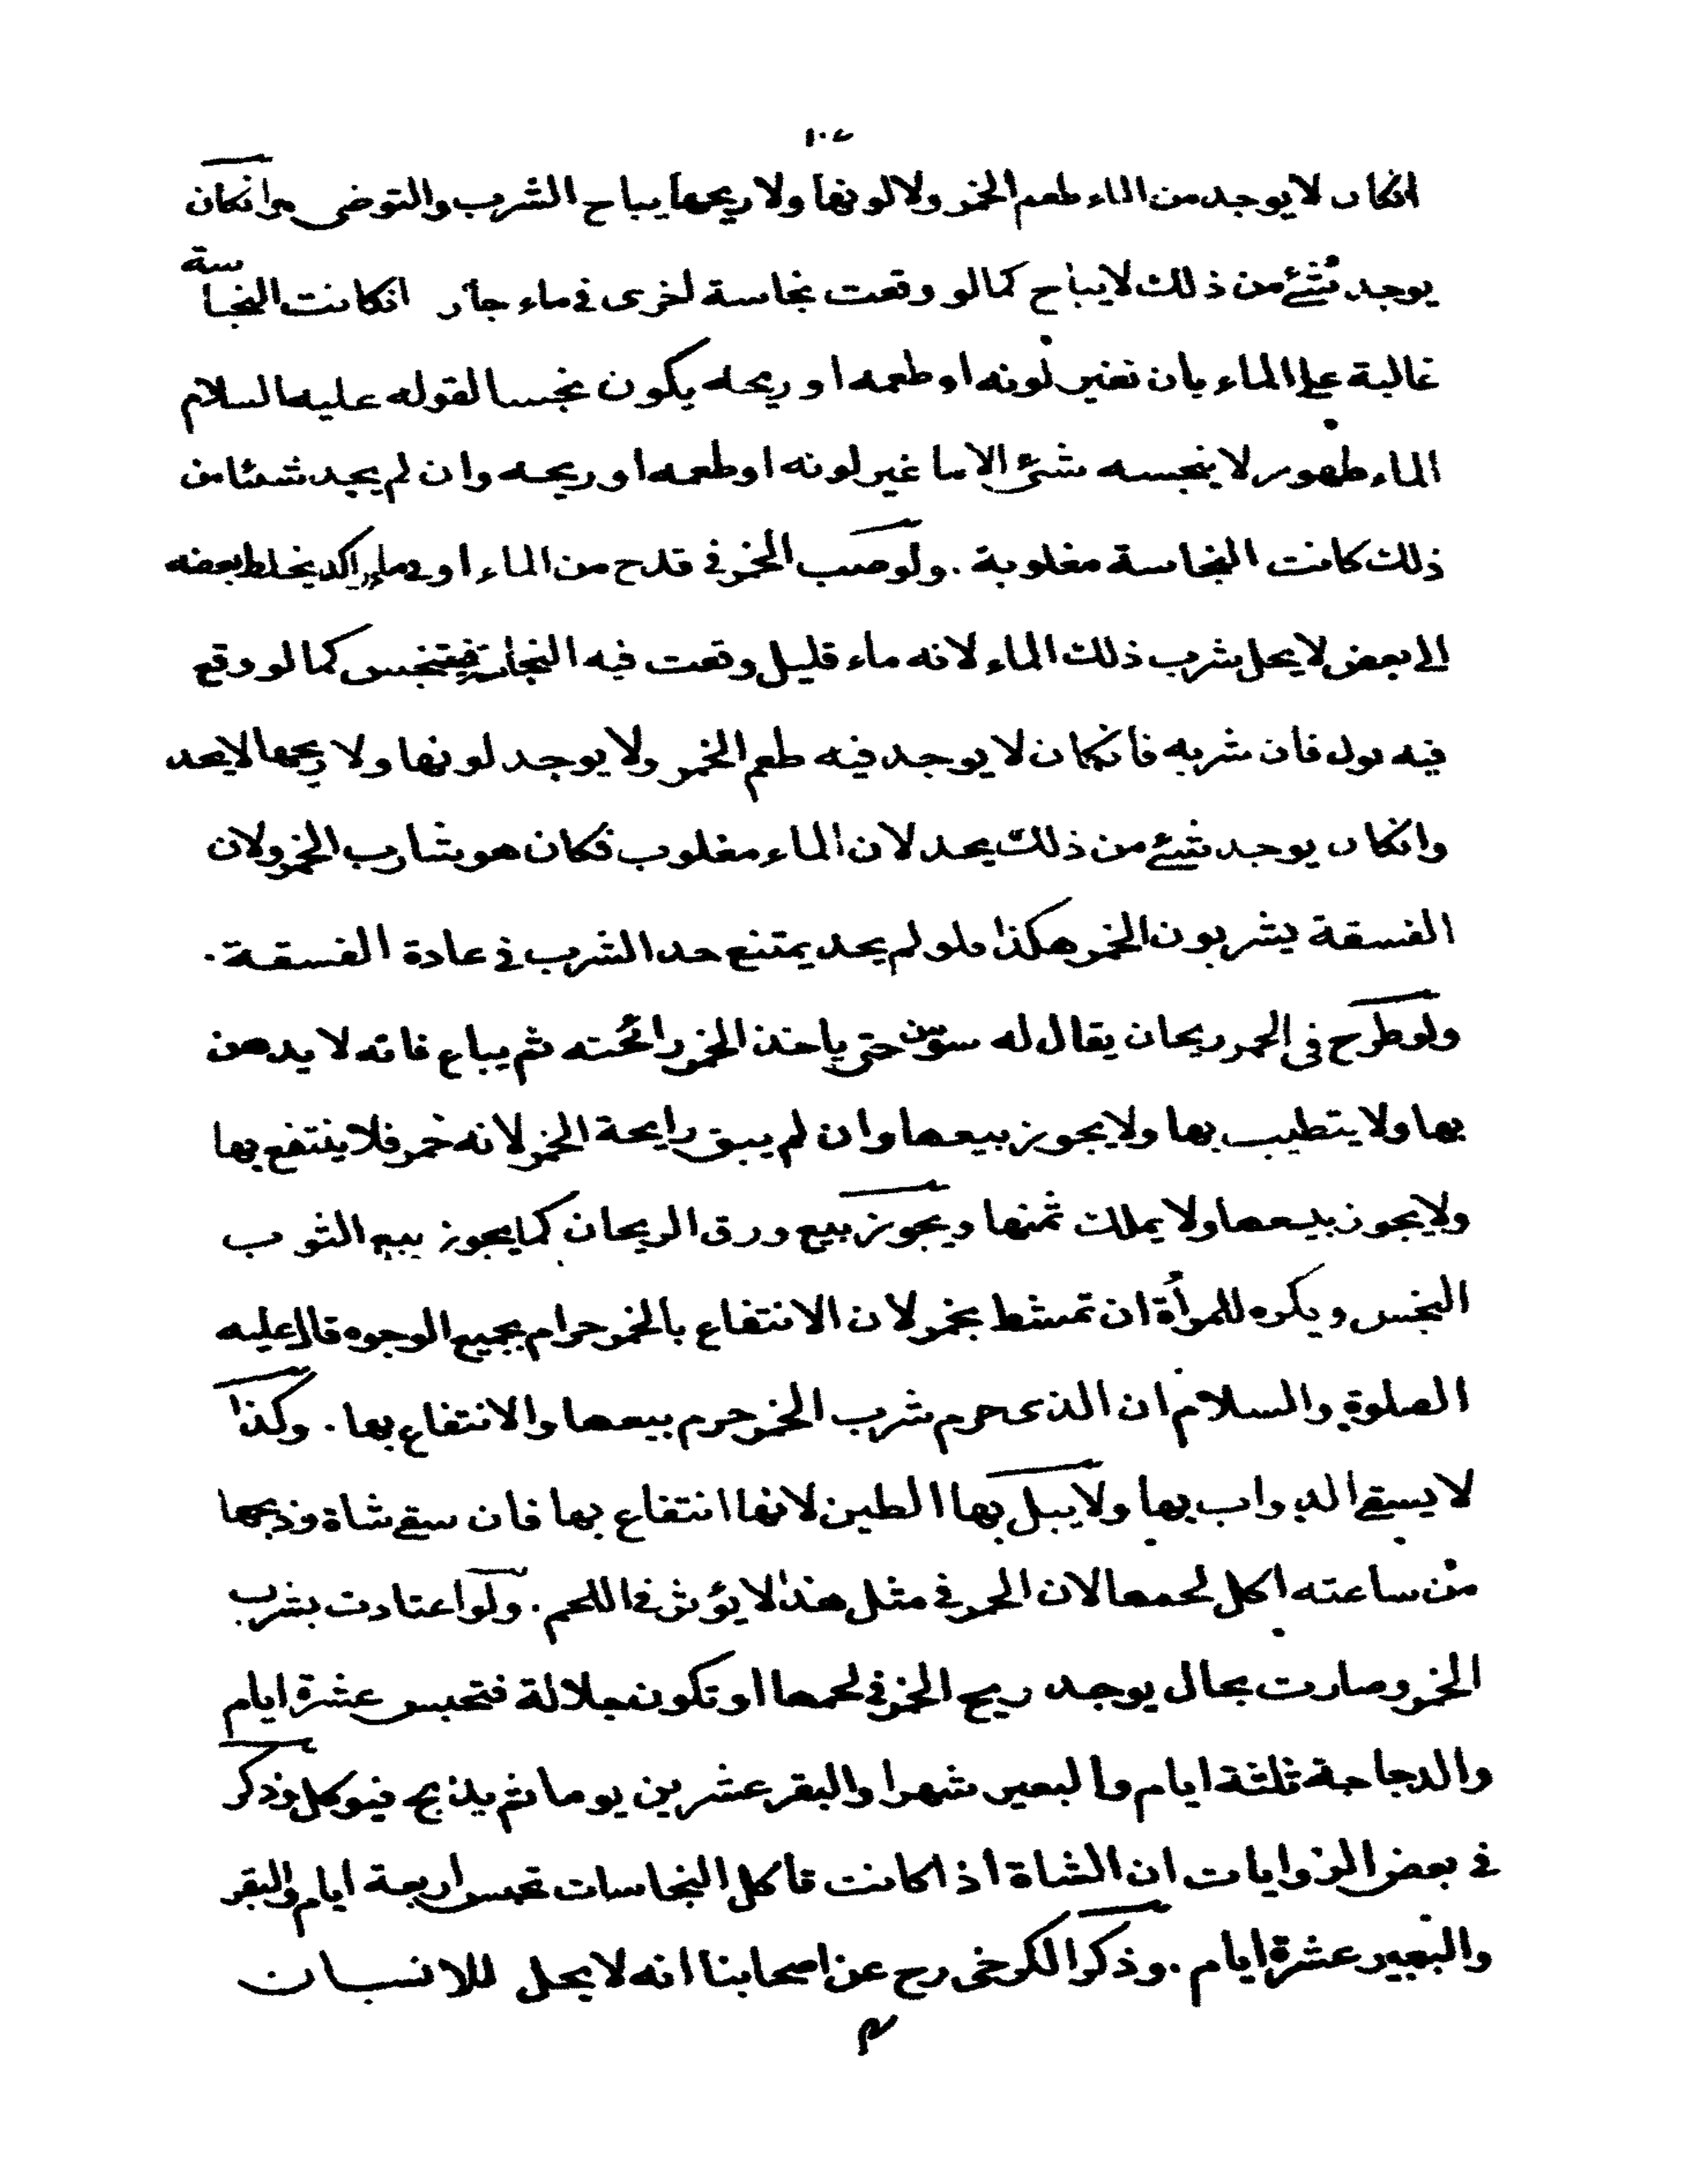 ١٠٤
انكان لا يوجد من الماء طعم الخمر ولا لونها ولا ريحها يباح الشرب والتوضى به وانكان
يوجد شئ من ذلك لا يباح كما لو وقعت نجاسة اخرى فى ماء جار انكانت النجاسة
غالبة على الماء بان تغير لونه او طعمه او ريحه يكون نجسا لقوله عليه السلام
الماء طهور لا ينجسه شئ الا ما غير لونه او طعمه او ريحه وان لم يجد شئا من
ذلك كانت النجاسة مغلوبة . ولو صب الخمر فى قدح من الماء او فى ماء راكد يخلط بعضه
الى بعض لا يحل شرب ذلك الماء لانه ماء قليل وقعت فيه النجاسة فيتنجس كما لو وقع
فيه بول فان شربه فانكان لا يوجد فيه طعم الخمر ولا يوجد لونها ولا ريحها لا يحد
وانكان يوجد شئ من ذلك يحد لان الماء مغلوب فكان هو شارب الخمر ولان
الفسقة يشربون الخمر هكذا فلو لم يحد يمتنع حد الشرب فى عادة الفسقة .
ولو طرح فى الخمر ريحان يقال له سوسن حتى ياخذ الخمر رائحته ثم يباع فانه لا يدهن
بها ولا يتطيب بها ولا يجوز بيعها وان لم يبق رايحة الخمر لانه خمر فلا ينتفع بها
ولا يجوز بيعها ولا يملك ثمنها ويجوز بيع ورق الريحان كما يجوز بيع الثوب
النجس ويكره للمرأة ان تمشط بخمر لان الانتفاع بالخمر حرام بجميع الوجوه قال عليه
الصلوة والسلام ان الذى حرم شرب الخمر حرم بيعها والانتفاع بها . وكذا
لا يسقى الدواب بها ولا يبل بها الطين لانها انتفاع بها فان سقى شاة وذبحها
من ساعته اكل لحمها لان الخمر فى مثل هذا لا يؤثر فى اللحم . ولو اعتادت بشرب
الخمر وصارت بحال يوجد ريح الخمر فى لحمها او تكون جلالة فتحبس عشرة ايام
والدجاجة ثلثة ايام والبعير شهرا والبقر عشرين يوما ثم يذبح فيوكل وذكر
فى بعض الروايات ان الشاة اذا كانت تاكل النجاسات تحبس اربعة ايام والبقر
والبعير عشرة ايام . وذكر الكرخى رح عن اصحابنا انه لا يحل للانسان